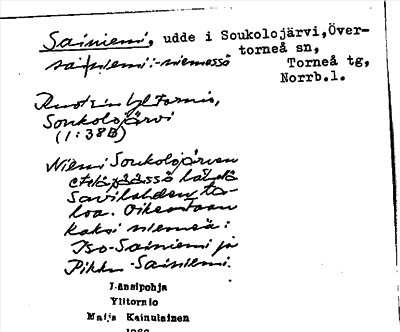 Sainiemi, udde i Soukolojärvi, Över-
torneå sn,
sai|niemi: -niemessä Torneå tg,
Norrb.l.
Soukolojärvi
(1:38B)
Niemi Soukolojärven
eteläpäässä lähellä
Savilahden ta-
loa. Oikeastaan
kaksi niemeä:
Iso-Sainiemi ja
Pikku-Sainiemi.
Länsipohja
Ylitornio
Maija Kainulainen